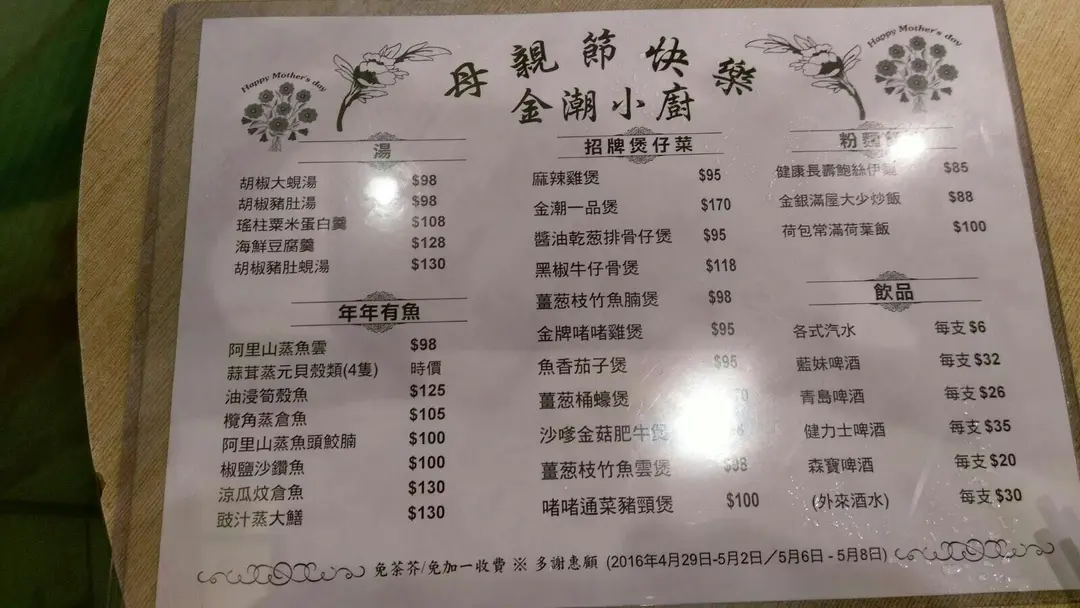 Happy Mother's day
Happy Mother's day
母親節快樂
金潮小廚
湯
胡椒大蜆湯 $98
胡椒豬肚湯 $98
瑤柱粟米蛋白羹 $108
海鮮豆腐羹 $128
胡椒豬肚蜆湯 $130
年年有魚
阿里山蒸魚雲 $98
蒜茸蒸元貝殼類(4隻) 時價
油浸筍殼魚 $125
欖角蒸倉魚 $105
阿里山蒸魚頭鮫腩 $100
椒鹽沙鑽魚 $100
涼瓜炆倉魚 $130
豉汁蒸大鱔 $130
招牌煲仔菜
麻辣雞煲 $95
金潮一品煲 $170
醬油乾葱排骨仔煲 $95
黑椒牛仔骨煲 $118
薑葱枝竹魚腩煲 $98
金牌啫啫雞煲 $95
魚香茄子煲 $95
薑葱桶蠔煲
沙嗲金菇肥牛煲
薑葱枝竹魚雲煲 $98
啫啫通菜豬頸煲 $100
粉麵
健康長壽鮑絲伊麵 $85
金銀滿屋大少炒飯 $88
荷包常滿荷葉飯 $100
飲品
各式汽水 每支 $6
藍妹啤酒 每支 $32
青島啤酒 每支 $26
健力士啤酒 每支 $35
森寶啤酒 每支 $20
(外來酒水) 每支 $30
免茶芥/免加一收費 ※ 多謝惠顧 (2016年4月29日-5月2日／5月6日 - 5月8日)